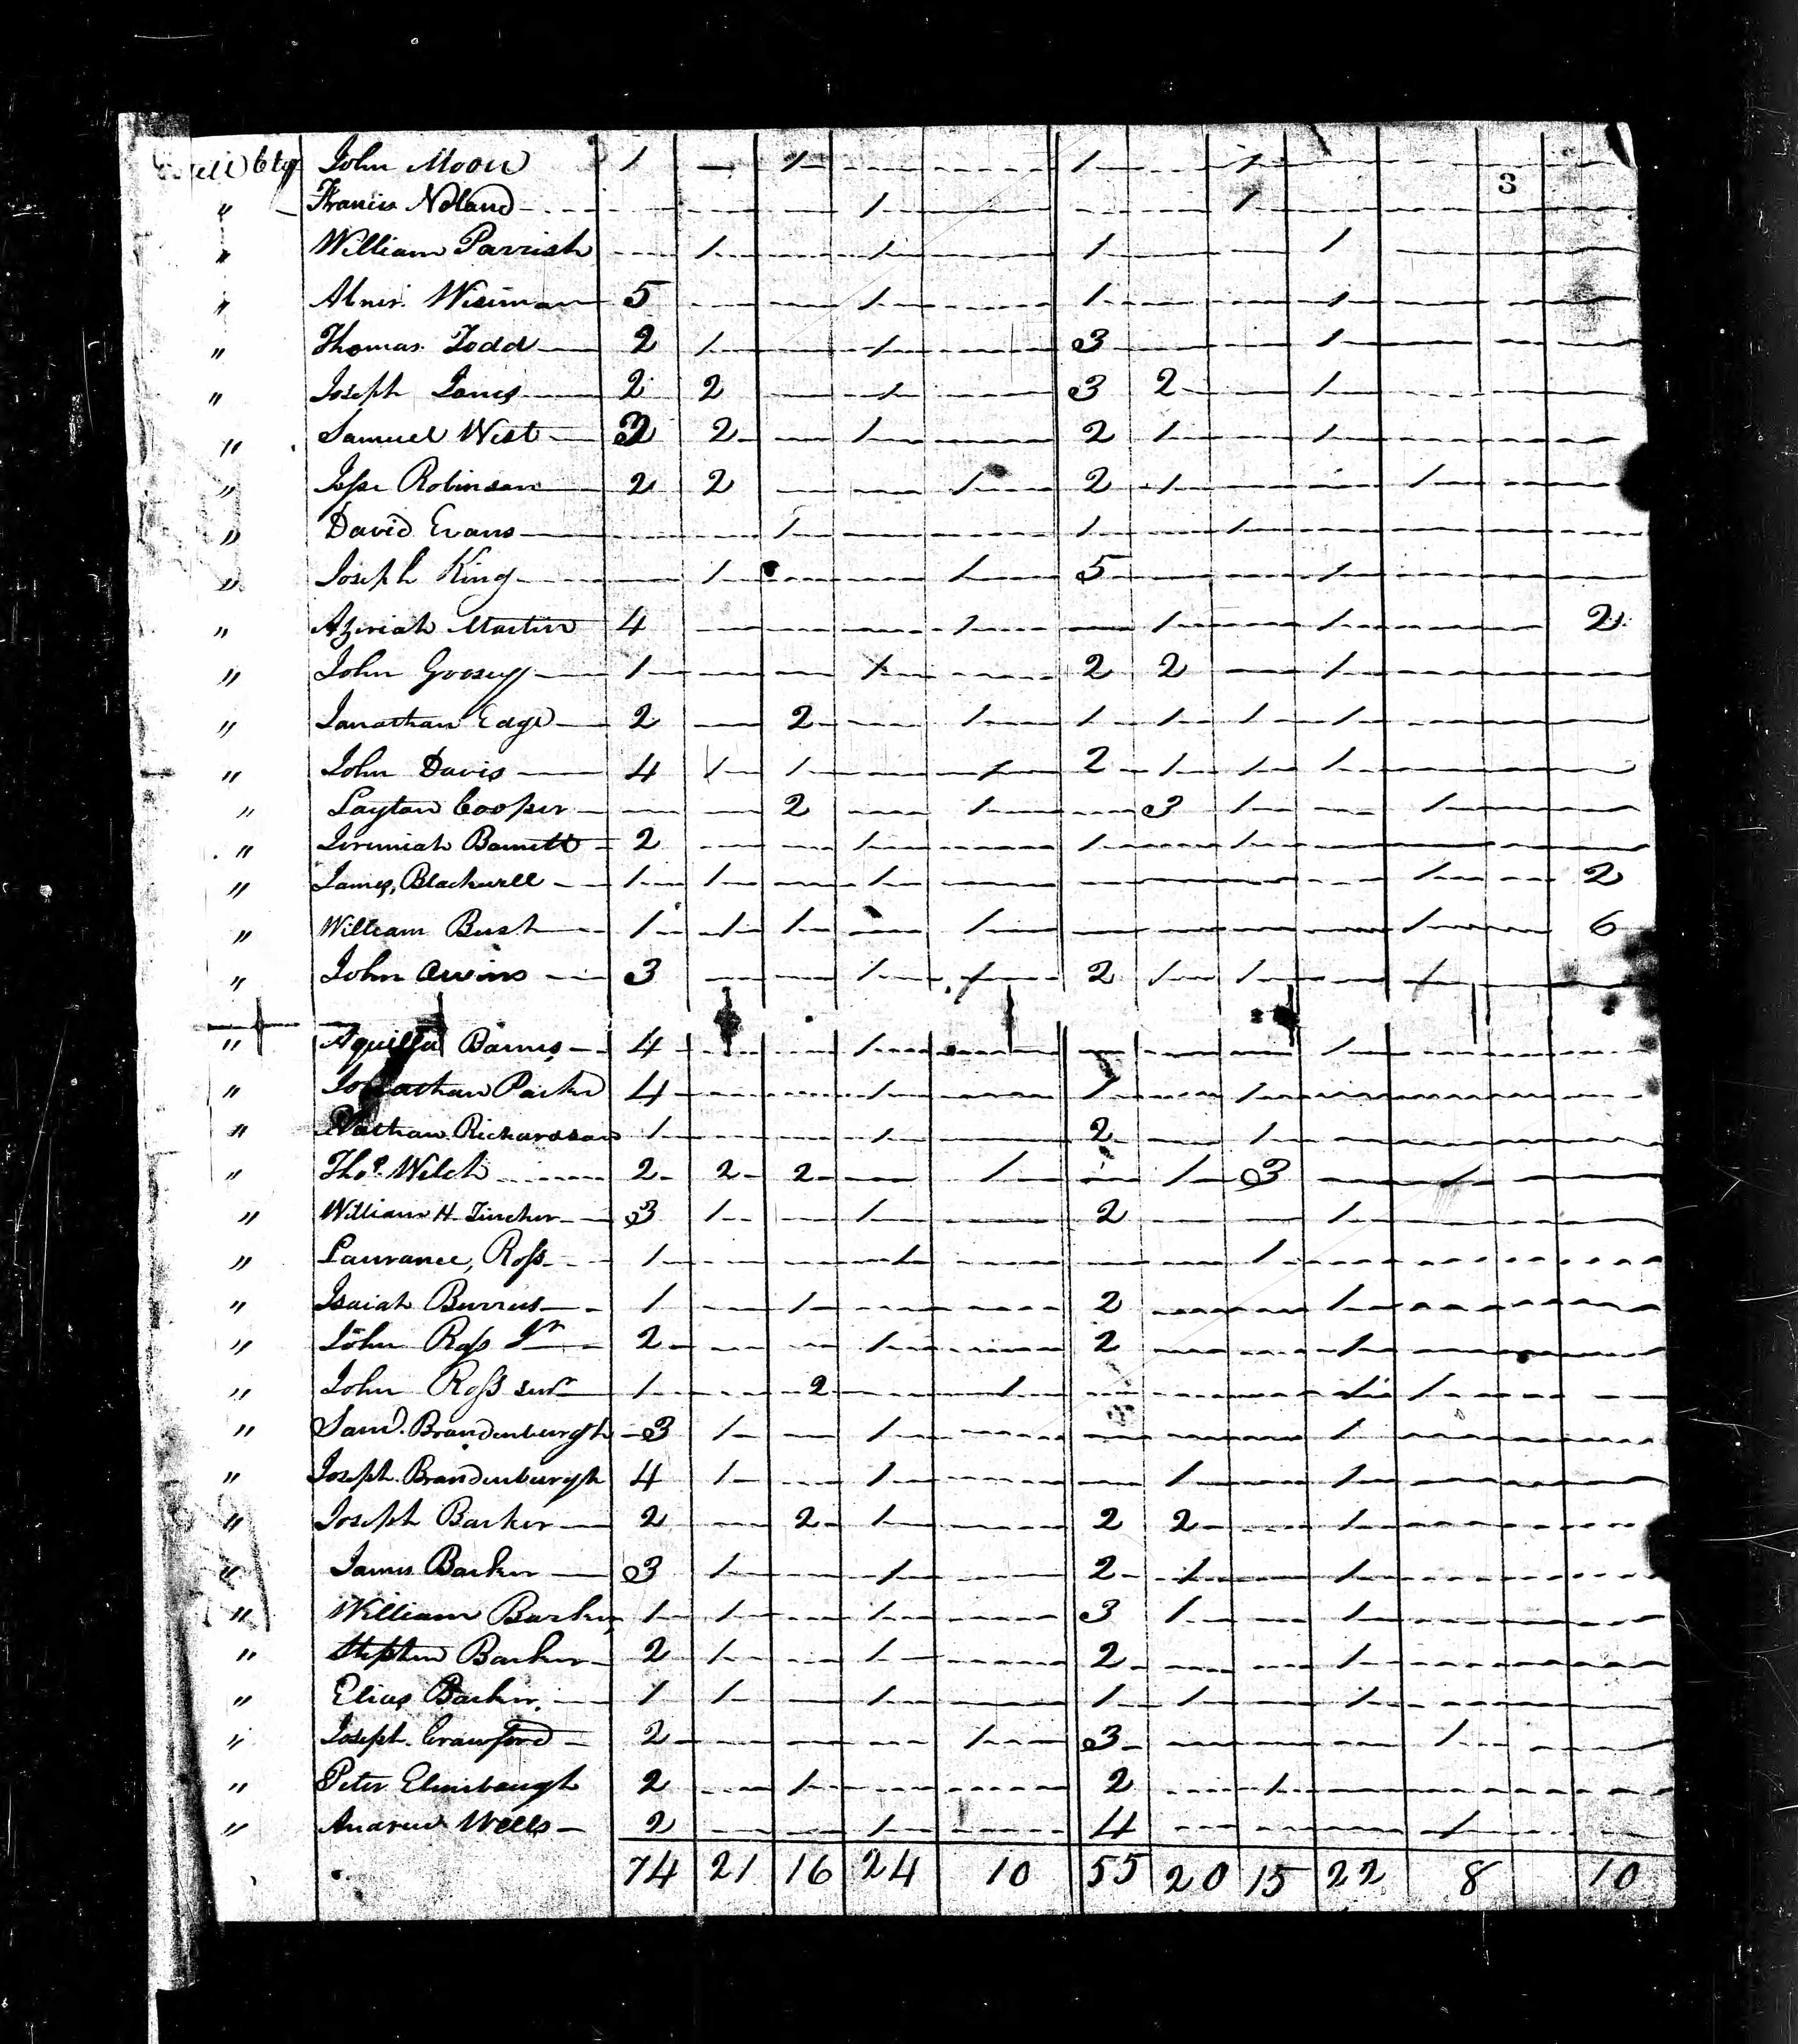 Cty John Moon 1 — 1 — — 1 — 1 — — — —
3
" Francis Noland — — — 1 — — — 1 — — — —
" William Parrish — 1 — 1 — 1 — — 1 — — —
" Abner Wiseman 5 — — 1 — 1 — — 1 — — —
" Thomas Todd 2 1 — 1 — 3 — — 1 — — —
" Joseph Jones 2 2 — 1 — 3 2 — 1 — — —
" Samuel West 2 — 1 — 2 1 — 1 — — —
" Jesse Robinson 2 2 — — 1 2 1 — — 1 — —
" David Evans — — 1 — — 1 — 1 — — — —
" Joseph King — 1 — — 1 5 — — 1 — — —
" Azeriah Martin 4 — — — 1 — 1 — 1 — — 2
" John Goosey 1 — — 1 — 2 2 — 1 — — —
" Janathan Edge 2 — 2 — 1 1 1 1 1 — — —
" John Davis 4 1 1 — 1 2 1 1 1 — — —
" Layton Cooper — — 2 — 1 — 3 1 — 1 — —
" Jeremiah Barnett 2 — — 1 — 1 — 1 — — — —
" James, Blackwell 1 1 — 1 — — — — — 1 — 2
" William Bush 1 1 1 — 1 — — — — 1 — 6
" John Owins 3 — — 1 1 2 1 1 — 1 — —
" Aquilla Barnes 4 — — 1 — — — — 1 — — —
" Jonathan Parker 4 — — 1 — 1 — 1 — — — —
" Nathan Richardson 1 — — 1 — 2 — 1 — — — —
" Thos. Welch 2 2 2 — 1 — 1 3 — 1 — —
" William H. Tincher 3 1 — 1 — 2 — — 1 — — —
" Laurance, Ross 1 — — 1 — — — 1 — — — —
" Isaiah Burrus 1 — 1 — — 2 — — 1 — — —
" John Ross Jr 2 — — 1 — 2 — — 1 — — —
" John Ross senr 1 — 2 — 1 — — — 1 1 — —
" Saml. Brandenburgh 3 1 — 1 — — — — 1 — — —
" Joseph Brandenburgh 4 1 — 1 — — 1 — 1 — — —
" Joseph Barker 2 — 2 1 — 2 2 — 1 — — —
" James Barker 3 1 — 1 — 2 1 — 1 — — —
" William Barker 1 1 — 1 — 3 1 — 1 — — —
" Stephen Barker 2 1 — 1 — 2 — — 1 — — —
" Elias Barker 1 1 — 1 — 1 1 — 1 — — —
" Joseph Crawford 2 — — — 1 3 — — — 1 — —
" Peter Elmibaugh 2 — 1 — — 2 — 1 — — — —
" Andrew Wells 2 — — 1 — 4 — — — 1 — —
74 21 16 24 10 55 20 15 22 8 10